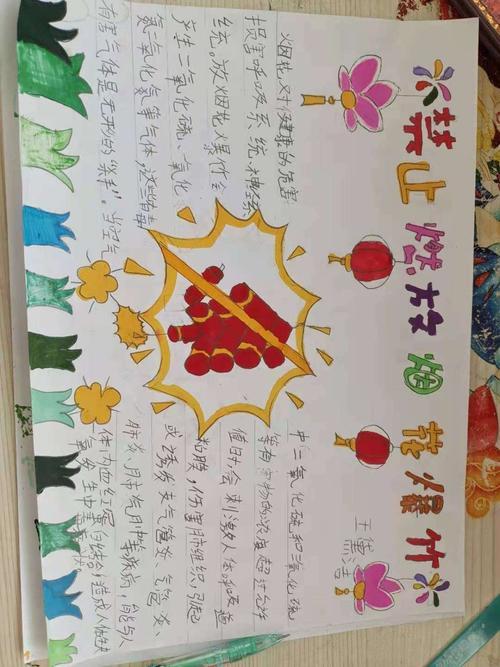 禁止燃放烟花爆竹
烟花对健康的危害
损害呼吸系统、神经系
统。放烟花爆竹会
产生二氧化硫、一氧化
氮、二氧化氮等气体，这些有毒
有害气体是无形的“杀手”。当空气
王
中二氧化硫和二氧化硫
等有害物的浓度超过允许
值时，会刺激人体呼吸道
粘膜，伤害肺组织，引起
或诱发支气管炎、气管炎、
肺炎、肺气肿等疾病，能与人
体内血红蛋
白结合，造成人体缺